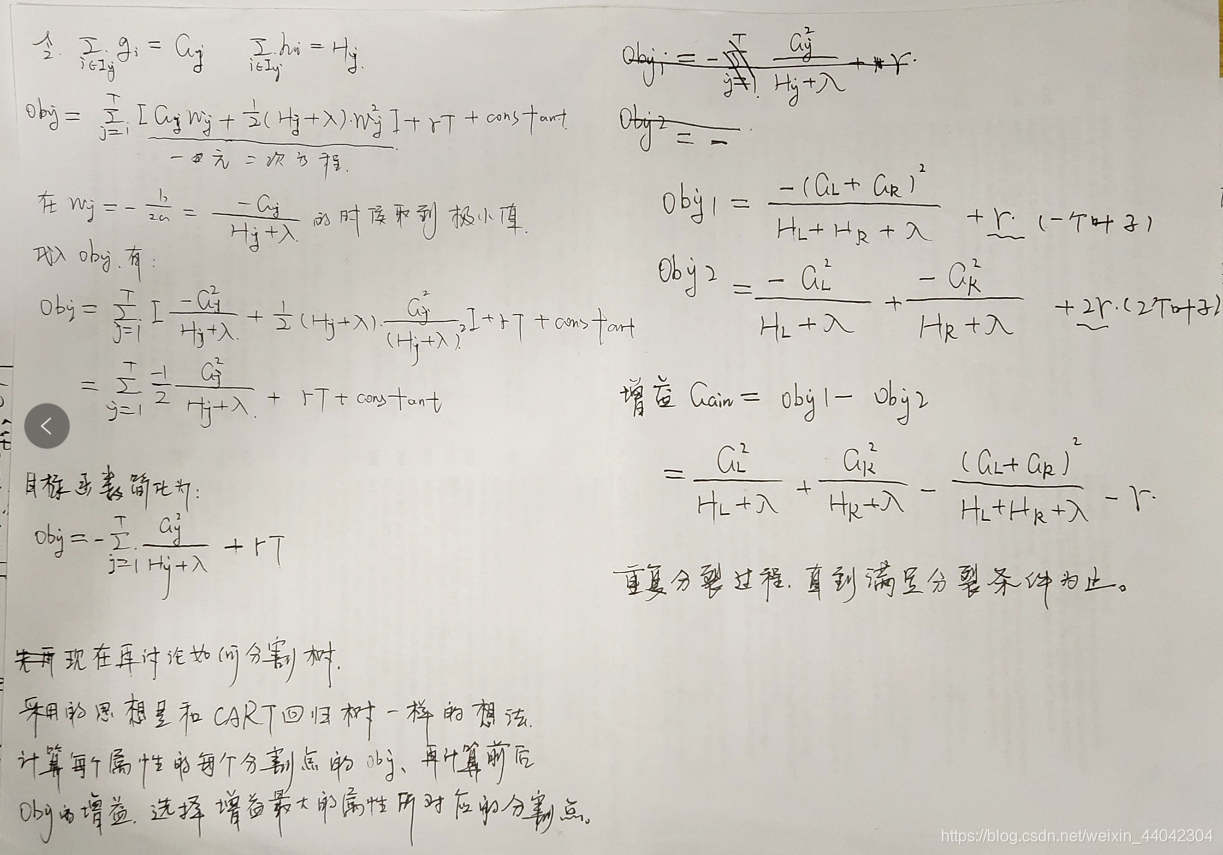 令. ∑_{i∈Ij} gi = Gj   ∑_{i∈Ij} hi = Hj.
Obj = ∑_{j=1}^{T} [Gj Wj + 1/2 (Hj + λ)·Wj²] + rT + constant.
一元二次方程.
在 Wj = - b/2a = -Gj/(Hj + λ) 的时候取到极小值.
代入 obj. 有:
Obj = ∑_{j=1}^{T} [-Gj²/(Hj + λ) + 1/2 (Hj + λ)·Gj²/(Hj + λ)²] + rT + constant
= ∑_{j=1}^{T} -1/2 Gj²/(Hj + λ) + rT + constant
目标函数简化为:
Obj = -∑_{j=1}^{T} Gj²/(Hj + λ) + rT
现在再讨论如何分割树.
采用的思想是和CART回归树一样的想法.
计算每个属性的每个分割点的obj、再计算前后
Obj的增益. 选择增益最大的属性所对应的分割点。
Obj1 = -∑_{j=1}^{T} Gj²/(Hj + λ) + r.
Obj2 = -
Obj1 = -(GL + GR)²/(HL + HR + λ) + r. (一个叶子)
Obj2 = -GL²/(HL + λ) + -GR²/(HR + λ) + 2r. (2个叶子)
增益 Gain = obj1 - obj2
= GL²/(HL + λ) + GR²/(HR + λ) - (GL + GR)²/(HL + HR + λ) - r.
重复分裂过程. 直到满足分裂条件为止。
https://blog.csdn.net/weixin_44042304